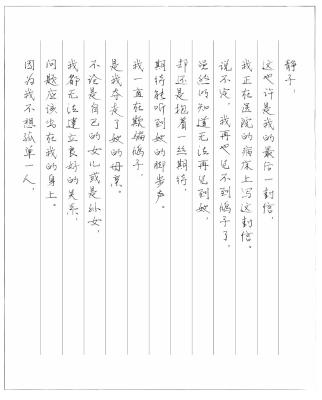 静子，
这也许是我的最后一封信，
我正在医院的病床上写这封信。
说不定，我再也见不到鸽子了，
虽然明知道无法再见到她，
却还是抱着一丝期待，
期待能听到她的脚步声。
我一直在欺骗鸽子，
是我夺走了她的母亲。
不论是自己的女儿或是孙女，
我都无法建立良好的关系，
问题应该出在我的身上。
因为我不想孤单一人，